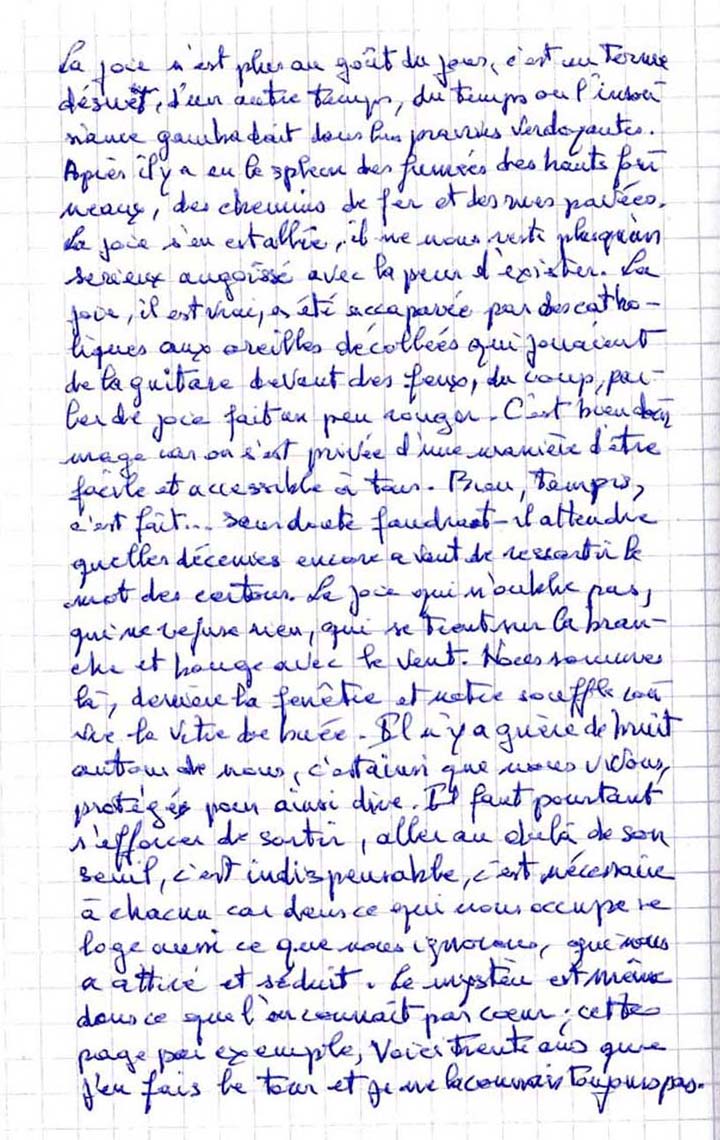 La joie n'est plus au goût du jour, c'est un terme
désuet, d'un autre temps, du temps où l'insou
siance gambadait dans les prairies verdoyantes.
Après il y a eu le spleen des fumées des hauts four
neaux, des chemins de fer et des rues pavées.
La joie s'en est allée, il ne nous reste plus qu'un
serieux angoissé avec la peur d'exister. La
joie, il est vrai, a été accaparée par des catho-
liques aux oreilles décollées qui jouaient
de la guitare devant des feux, du coup, par-
ler de joie fait un peu rougir. C'est bien dom
mage car on s'est privée d'une manière d'être
facile et accessible à tous. Bon, tampis,
c'est fait... sans doute faudrait-il attendre
quelles décenies encore avant de ressortir le
mot des cartons. La joie qui n'oublie pas,
qui ne refuse rien, qui se tient sur la bran-
che et bouge avec le vent. Nous sommes
là, derrière la fenêtre et notre souffle cou
vre la vitre de buée. Il n'y a guère de bruit
autour de nous, c'est ainsi que nous vivons,
protégés pour ainsi dire. Il faut pourtant
s'efforcer de sortir, aller au delà de son
seuil, c'est indispensable, c'est nécessaire
à chacun car dans ce qui nous occupe se
loge aussi ce que nous ignorons, qui nous
a attiré et séduit. Le mystère est même
dans ce que l'on connaît par coeur ; cette
page par exemple, voici trente ans que
j'en fais le tour et je ne la connais toujours pas.